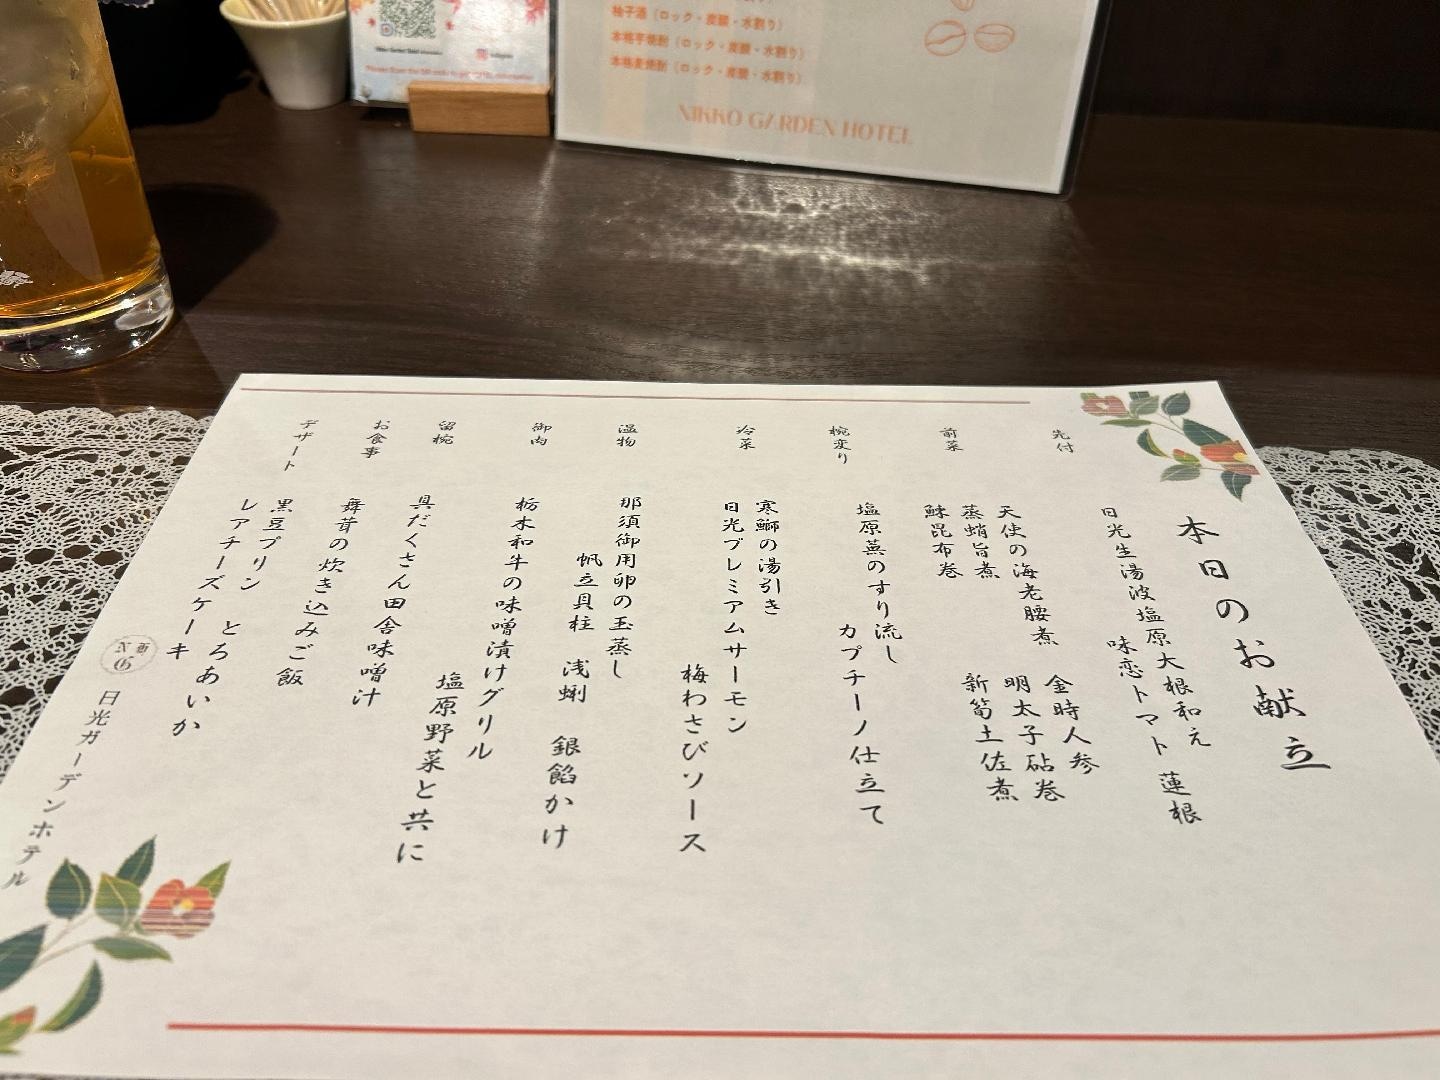 柚子酒（ロック・炭酸・水割り）
本格芋焼酎（ロック・炭酸・水割り）
本格麦焼酎（ロック・炭酸・水割り）
NIKKO GARDEN HOTEL
本日のお献立
先付
日光生湯波塩原大根和え 蓮根
味恋トマト
前菜
天使の海老腰煮 金時人参
蒸蛸旨煮 明太子砧巻
鰊昆布巻 新筍土佐煮
椀変り
塩原蕪のすり流し
カプチーノ仕立て
冷菜
寒鰤の湯引き
日光プレミアムサーモン
梅わさびソース
温物
那須御用卵の玉蒸し
帆立貝柱 浅蜊 銀餡かけ
御肉
栃木和牛の味噌漬けグリル
塩原野菜と共に
留椀
具だくさん田舎味噌汁
お食事
舞茸の炊き込みご飯
デザート
黒豆プリン とろあいか
レアチーズケーキ
日光ガーデンホテル